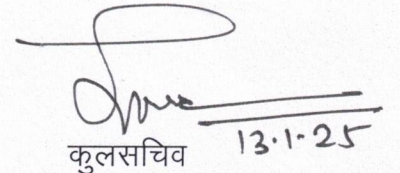 13.1.25
कुलसचिव